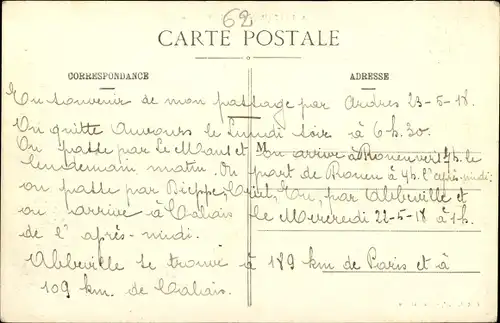 62
CARTE POSTALE
CORRESPONDANCE
ADRESSE
En souvenir de mon passage par Ardres 23-5-18.
On quitte Auvours le Lundi soir à 6h.30.
On passe par Le Mans et M on arrive à Rouen vers 4h. le
lendemain matin. On part de Rouen à 4h. l'après-midi;
on passe par Dieppe, Eu, par Abbeville et
on arrive à Calais le Mercredi 22-5-18 à 1h.
de l'après-midi.
Abbeville se trouve à 189 km de Paris et à
109 km. de Calais.